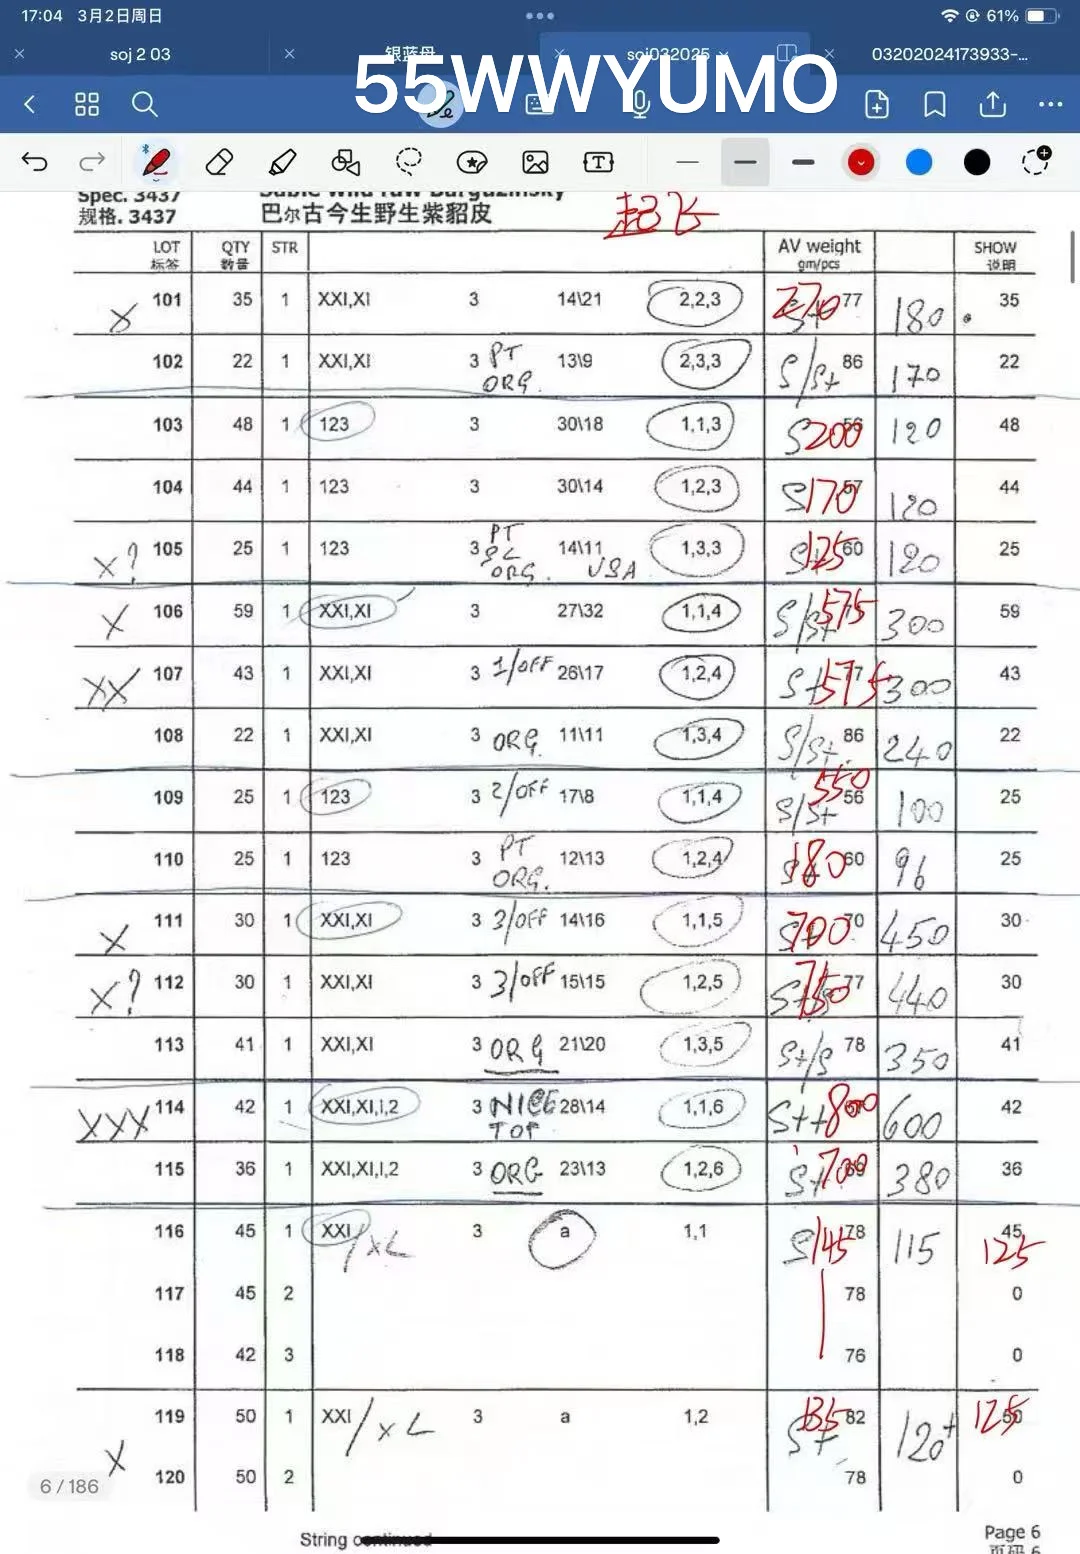 17:04 3月2日周日 61%
soj 2 03 银蓝丹 soj032025 03202024173933-...
55WWYUMO
Spec. 3437 Sable Wild raw Barguzinsky
规格. 3437 巴尔古今生野生紫貂皮 起飞
LOT QTY STR AV weight SHOW
标签 数量 gm/pcs 说明
X 101 35 1 XXI,XI 3 14\21 2,2,3 S+ 270 77 180. 35
102 22 1 XXI,XI 3 PT ORG. 13\9 2,3,3 S/S+ 86 170 22
103 48 1 123 3 30\18 1,1,3 S 200 56 120 48
104 44 1 123 3 30\14 1,2,3 S 170 57 120 44
X? 105 25 1 123 3 PT SL ORG. 14\11 USA 1,3,3 S+ 125 60 120 25
X 106 59 1 XXI,XI 3 27\32 1,1,4 S/S+ 575 300 59
XX 107 43 1 XXI,XI 3 1/OFF 26\17 1,2,4 S+ 575 77 300 43
108 22 1 XXI,XI 3 ORG 11\11 1,3,4 S/S+ 86 240 22
109 25 1 123 3 2/OFF 17\8 1,1,4 S/S+ 550 56 100 25
110 25 1 123 3 PT ORG. 12\13 1,2,4 180 60 96 25
X 111 30 1 XXI,XI 3 3/OFF 14\16 1,1,5 S+ 700 70 450 30
X? 112 30 1 XXI,XI 3 3/OFF 15\15 1,2,5 750 77 440 30
113 41 1 XXI,XI 3 ORG 21\20 1,3,5 S+/S 78 350 41
XXX 114 42 1 XXI,XI,I,2 3 NICE TOP 28\14 1,1,6 S++ 800 600 42
115 36 1 XXI,XI,I,2 3 ORG 23\13 1,2,6 S+ 700 69 380 36
116 45 1 XXI/XL 3 a 1,1 S 145 78 115 45 125
117 45 2 78 0
118 42 3 76 0
119 50 1 XXI/XL 3 a 1,2 S+ 135 82 120+ 50 125
X 120 50 2 78 0
6 / 186
String continued Page 6
页码 6